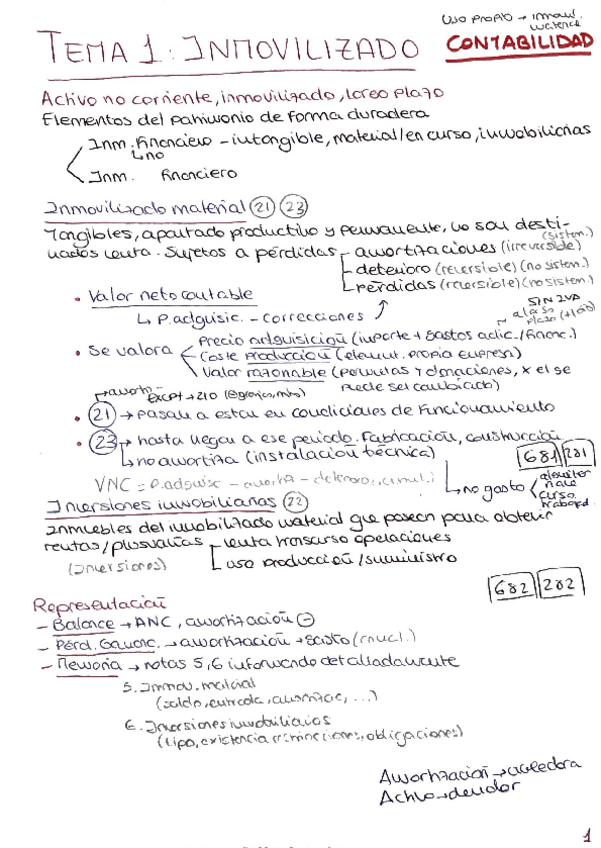 Uso propio → inmov.
material
CONTABILIDAD
TEMA 1: INMOVILIZADO
Activo no corriente, inmovilizado, largo plazo
Elementos del patrimonio de forma duradera
Inm. financiero - intangible, material/en curso, inmobiliarias
no
Inm. financiero
Inmovilizado material (21) (23)
Tangibles, apartado productivo y permanente, no son desti-
nados venta. Sujetos a pérdidas - amortizaciones (irreversible)
(sistem.)
deterioro (reversible) (no sistem.)
pérdidas (reversible) (no sistem.)
• Valor neto contable
↳ P. adquisic. - correcciones
SIN IVA
a largo
plazo (+1 año)
• Se valora
Precio adquisición (importe + gastos adic./financ.)
Coste producción (element. propia empresa)
Valor razonable (permutas y donaciones, x el se
puede ser cambiado)
→ amort.
except → 210
• (21) → pasan a estar en condiciones de funcionamiento
• (23) → hasta llegar a ese periodo. Fabricación, construcción
↳ no amortiza (instalación técnica)
681 281
↳ no gasto
nave
curso
VNC = P. adquisic - amort - deterioro
Inversiones inmobiliarias (22)
Inmuebles del inmobilizado material que poseen para obtener
rentas/plusvalías
venta transcurso operaciones
uso producción/suministro
(Inversiones)
682 282
Representación
- Balance → ANC, amortización (-)
- Pérd. Gananc. → amortización → gasto
- Memoria → notas 5, 6 informando detalladamente
5. Inmov. material
(saldo, entrada, amortizac, ...)
6. Inversiones inmobiliarias
(tipo, existencia restricciones, obligaciones)
Amortización → acreedora
Activo → deudor
1